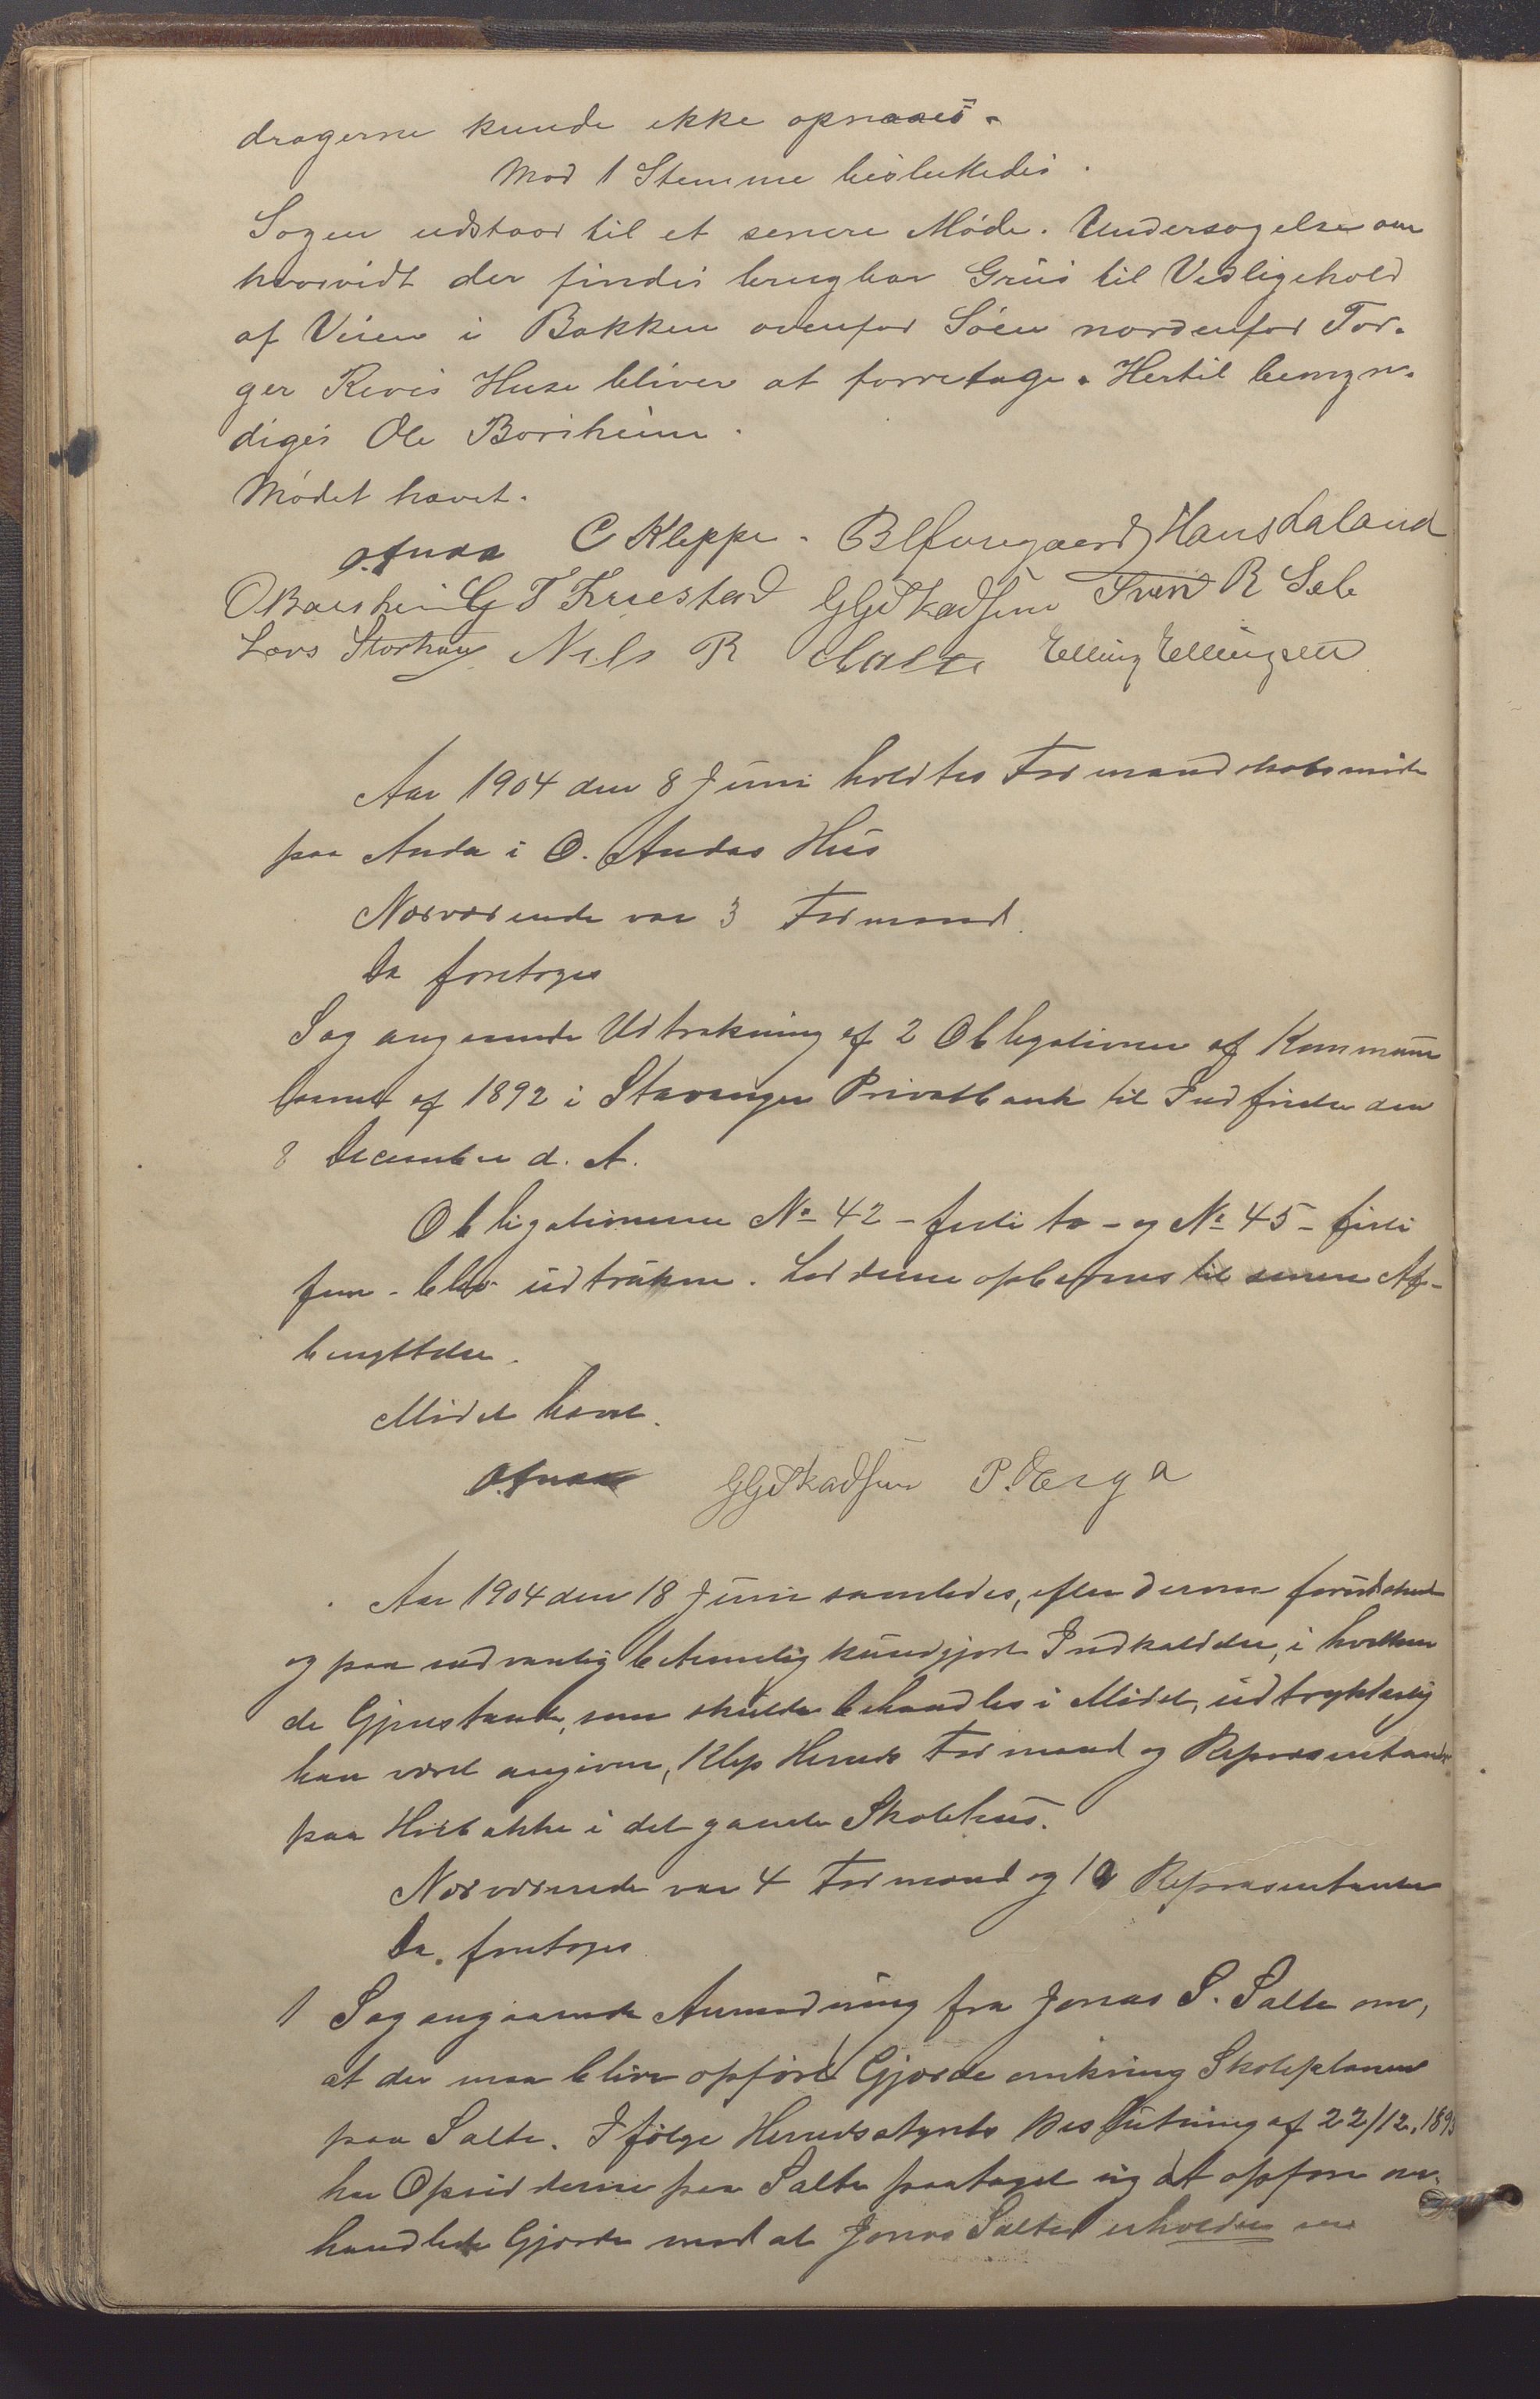 dragerne kunde ikke opnaaes.
Mod 1 Stemme besluttedes.
Sagen udstaar til et senere Møde. Undersøgelse om
hvorvidt der findes brugbar Grus til Vedligehold
af Veien i Bakken ovenfor Søen nordenfor Tor-
ger Reves Huse bliver at forretage. Hertil bemyn-
diges Ole Borsheim.
Mødet hævet.
O. Anda C Kleppe. Hans Laland
O Borsheim G T Fruestad G G Skadsem Sven R Sele
Lars Storhaug Nils R Salte Elling Ellingsen
Aar 1904 den 8 Juni holdtes Formandskabsmøde
paa Anda i O. Andas Hus
Nærværende var 3 Formænd.
Da foretoges
Sag angaaende Udtrækning af 2 Obligationer af Kommune
laanet af 1892 i Stavanger Privatbank til Indfrielse den
8 December d. A.
Obligationerne No 42 - firti to - og No 45 - firti
fem - blev udtrukne. Lodderne opbevares til senere Af-
benyttelse.
Mødet hævet.
O. Anda G G Skadsem P. Erga
Aar 1904 den 18 Juni samledes, efter derom forudskeet
og paa sædvanlig betimelig kundgjort Indkaldelse, i hvilken
de Gjenstande, som skulde behandles i Mødet, udtrykkelig
har været angivne, Klep Herreds Formænd og Repræsentanter
paa Hirbakke i det gamle Skolehus.
Nærværende var 4 Formænd og 12 Repræsentanter
Da foretoges
1 Sag angaaende Anmodning fra Jonas S. Salte om,
at der maa blive opført Gjærde omkring Skoleplanen
paa Salte. Ifølge Herredsstyrets Beslutning af 22/12. 189
har Opsidderne paa Salte paataget sig at opføre om-
handlede Gjærde mod at Jonas Salte erholder en